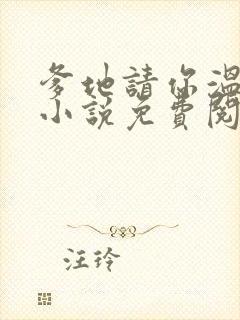 爹地請你溫
小說免費閱
汪玲